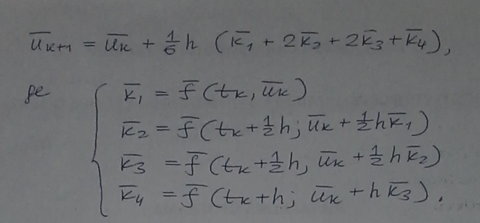 ūₖ₊₁ = ūₖ + 1/6 h (k̄₁ + 2k̄₂ + 2k̄₃ + k̄₄),
де
k̄₁ = f̄(tₖ, ūₖ)
k̄₂ = f̄(tₖ + 1/2 h; ūₖ + 1/2 h k̄₁)
k̄₃ = f̄(tₖ + 1/2 h, ūₖ + 1/2 h k̄₂)
k̄₄ = f̄(tₖ + h; ūₖ + h k̄₃).